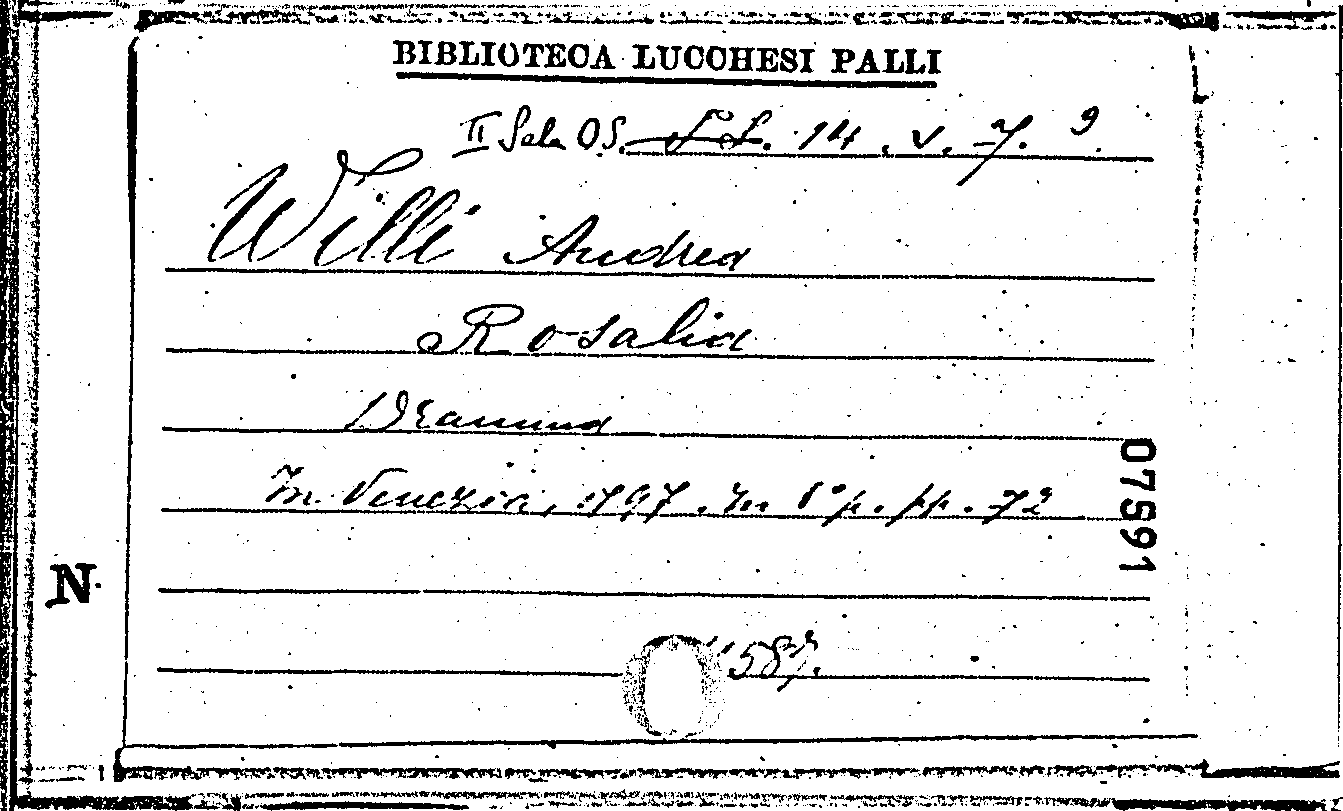 BIBLIOTECA LUCCHESI PALLI
II Sala O.S. 14. v. 7. 9
Willi Andrea
Rosalia
Dramma
In Venezia, 1797. In 8° p. pp. 72
07591
N.
587.